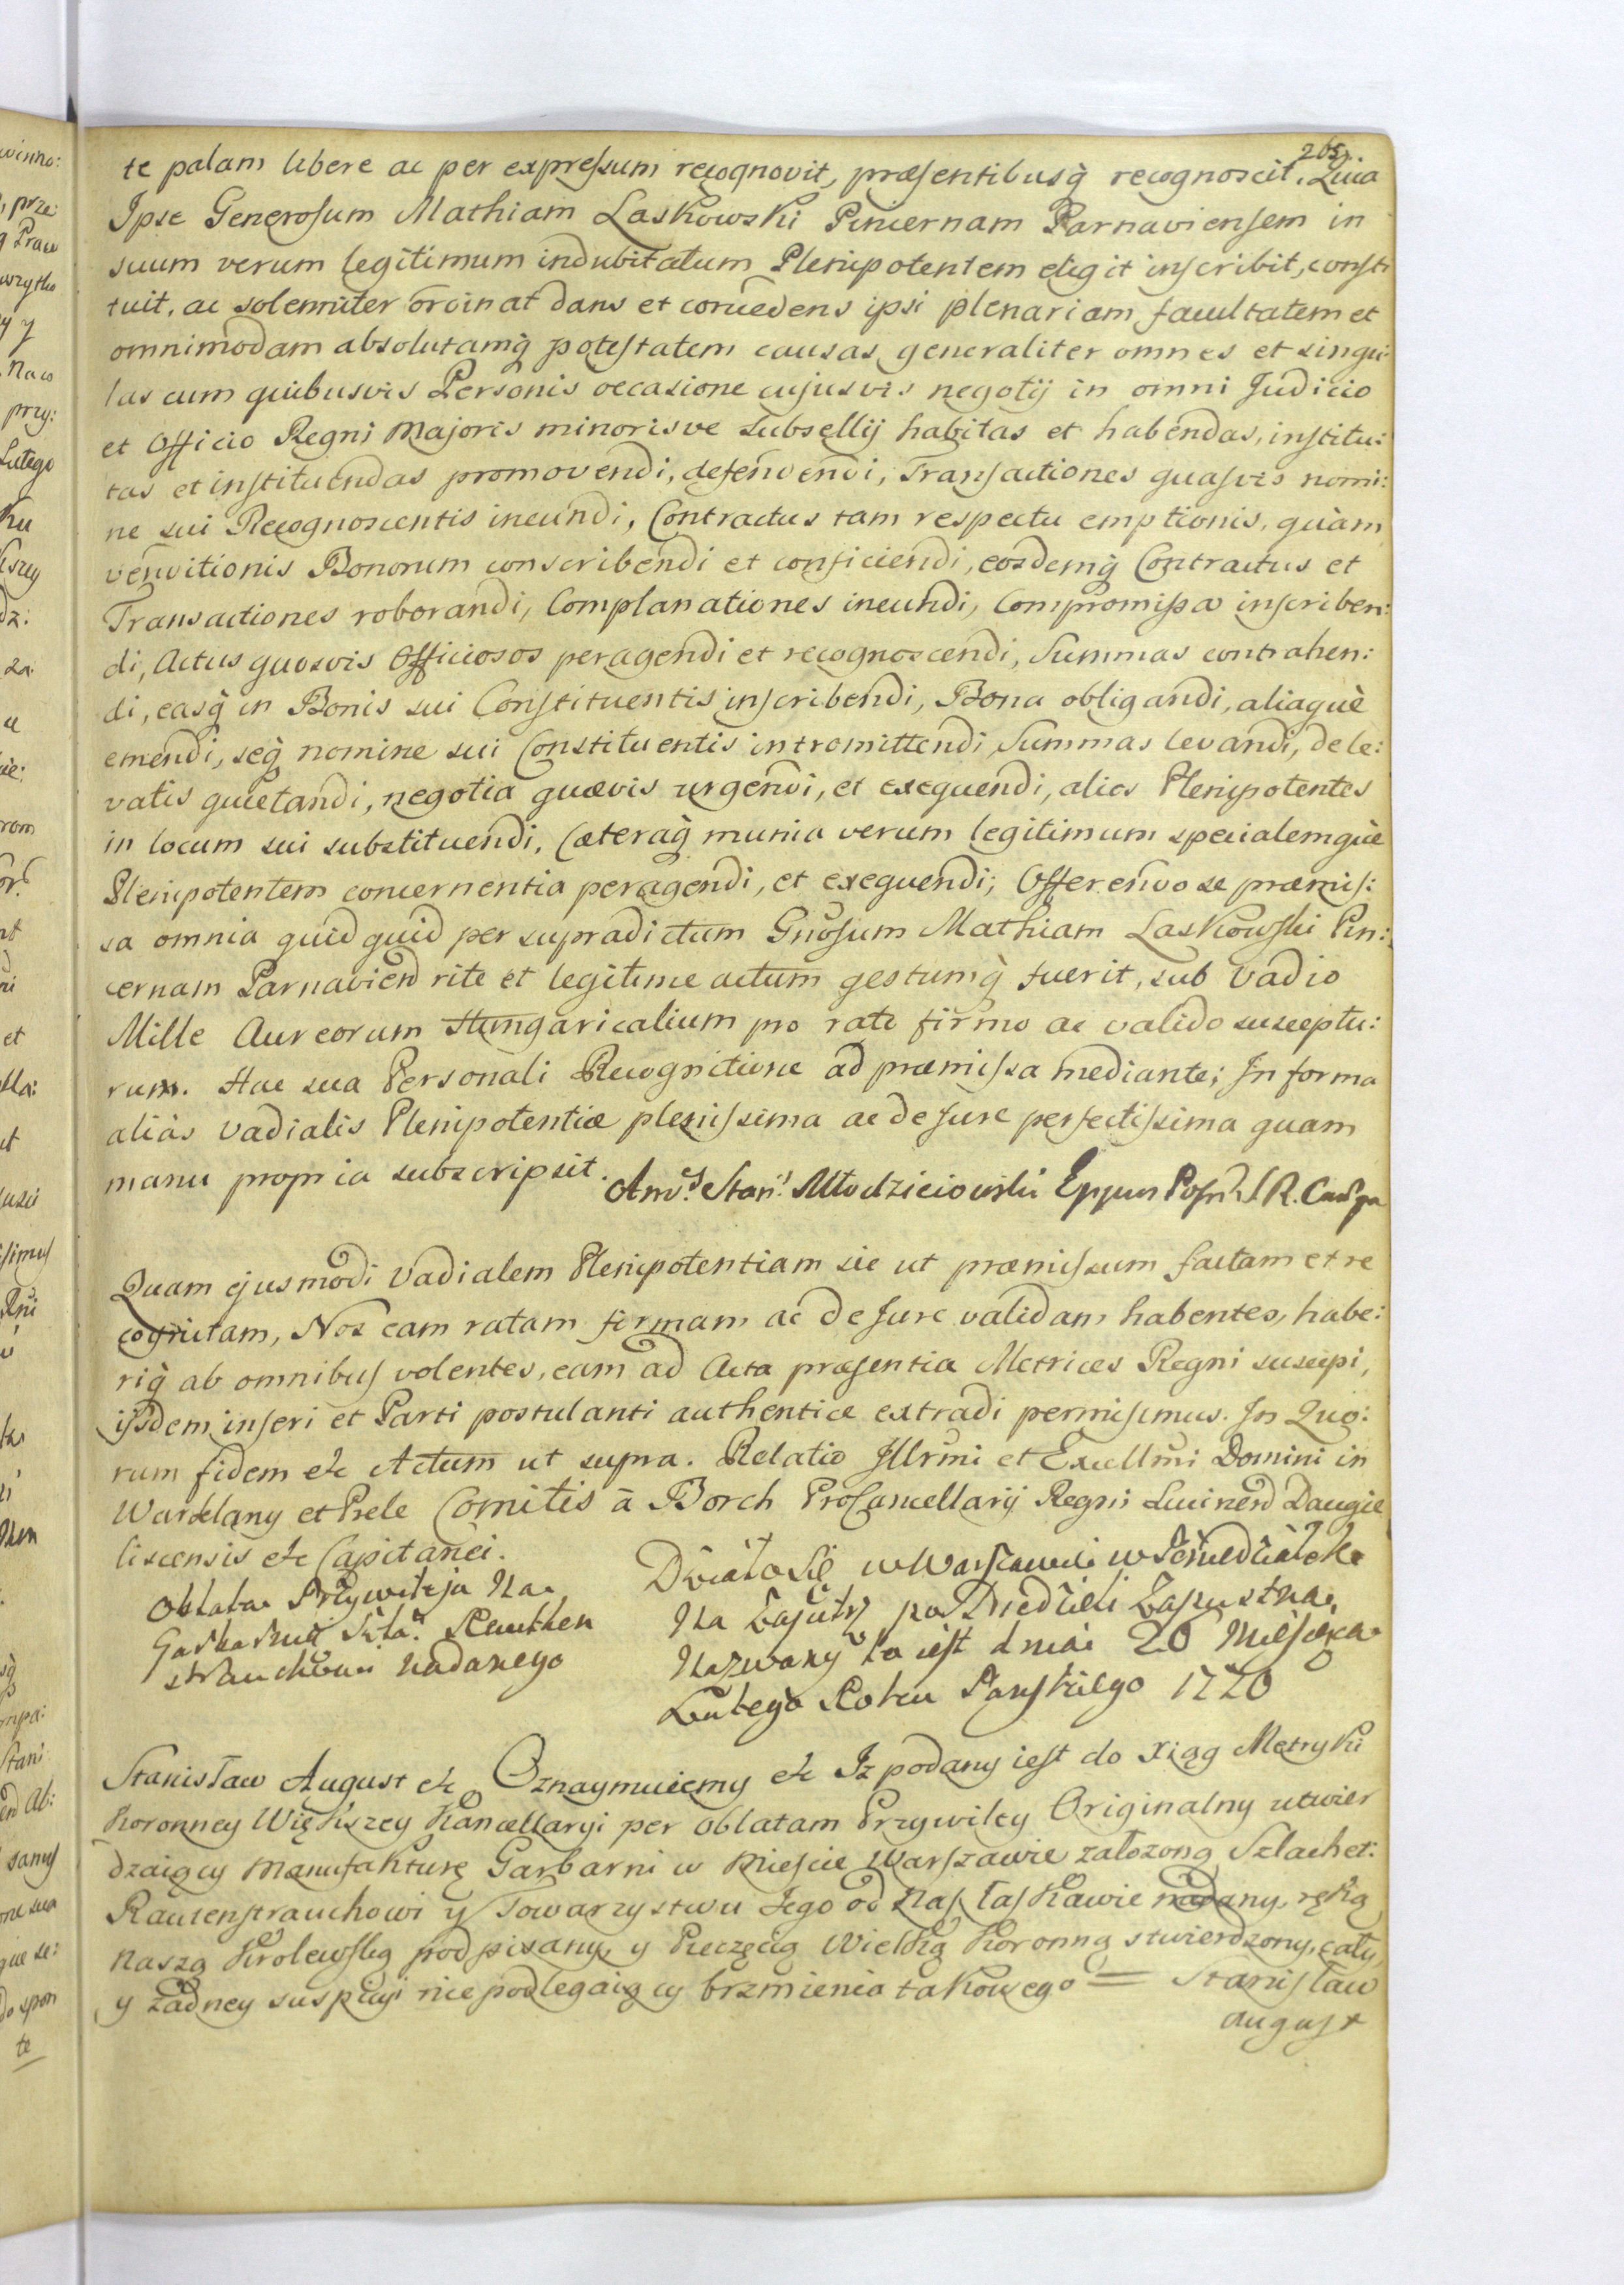 265.
te palam libere ac per expressum recognovit, præsentibusq̀ recognoscit. Quia
Ipse Generosum Mathiam Laskowski Pincernam Parnaviensem in
suum verum legitimum indubitatum Plenipotentem elegit inscribit, consti
tuit, ac solemniter ordinat dans et concedens ipsi plenariam facultatem et
omnimodam absolutamq̀ potestatem causas generaliter omnes et singu:
las cum quibusvis Personis occasione cujusvis negotij in omni Judicio
et Officio Regni Majoris minorisve Subsellij habitas et habendas, institu:
tas et instituendas promovendi, defendendi, Transactiones quasvis nomi:
ne sui Recognoscentis ineundi, Contractus tam respectu emptionis, quàm
venditionis Bonorum conscribendi et conficiendi, eosdemq̀ Contractus et
Transactiones roborandi, Complanationes ineundi, Compromissa inscriben:
di, Actus quosvis Officiosos peragendi et recognoscendi, Summas contrahen:
di, easq̀ in Bonis sui Constituentis inscribendi, Bona obligandi, aliaquè
emendi, seq̀ nomine sui Constituentis intromittendi, Summas levandi, de le:
vatis quietandi, negotia quævis urgendi, et exequendi, alios Plenipotentes
in locum sui substituendi, Cæteraq̀ munia verum legitimum specialemquè
Plenipotentem concernentia peragendi, et exequendi; Offerendo se præmis:
sa omnia quidquid per supradictum Gnosum Mathiam Laskowski Pin:
cernam Parnavien rite et legitime actum gestumq̀ fuerit, sub Vadio
Mille Aureorum Hungaricalium pro rato firmo ac valido susceptu:
rum. Hac sua Personali Recognitione ad præmissa mediante; In forma
aliàs Vadialis Plenipotentiæ plenissima ac de Jure perfectissima quam
manu propria subscripsit. Andr. Stan. Młodzieiowski Eppus Posn. S. R.
Quam ejusmodi Vadialem Plenipotentiam sic ut præmissum factam et re
cognitam, Nos eam ratam firmam ac de Jure validam habentes, habe:
riq̀ ab omnibus volentes, eam ad Acta præsentia Metrices Regni suscepi,
ijsdem inseri et Parti postulanti authentice extradi permisimus. In Quo:
rum fidem etc Actum ut supra. Relatio Illrmi et Excellmi Domini in
Warklany et Prele Comitis à Borch ProCancellarij Regni Lucinen Daugie
liscensis etc Capitanei.
Oblata Przywileja Na
Garbarnie Szla. Rauthen
strauchowi nadanego
Działo Się w Warszawie w Poniedziałek
Na Zajutrz po Niedzieli Zapustna
Nazwany to iest dnia 20 Miesiąca
Lutego Roku Pańskiego 1770
Stanisław August etc Oznaymuiemy etc Iż podany iest do Xiąg Metryki
Koronney Większey Kancellaryi per Oblatam Przywiley Originalny utwier
dzaiący Manufakturę Garbarni w Mieście Warszawie założoną Szlachet:
Rautenstrauchowi y Towarzystwu Jego od Nas łaskawie nadany, ręką
Naszą Krolewską podpisany, y Pieczęcią Wielką Koronną stwierdzony, cały,
y żadney suspicyi nie podlegaiący brzmienia takowego = Stanisław
August